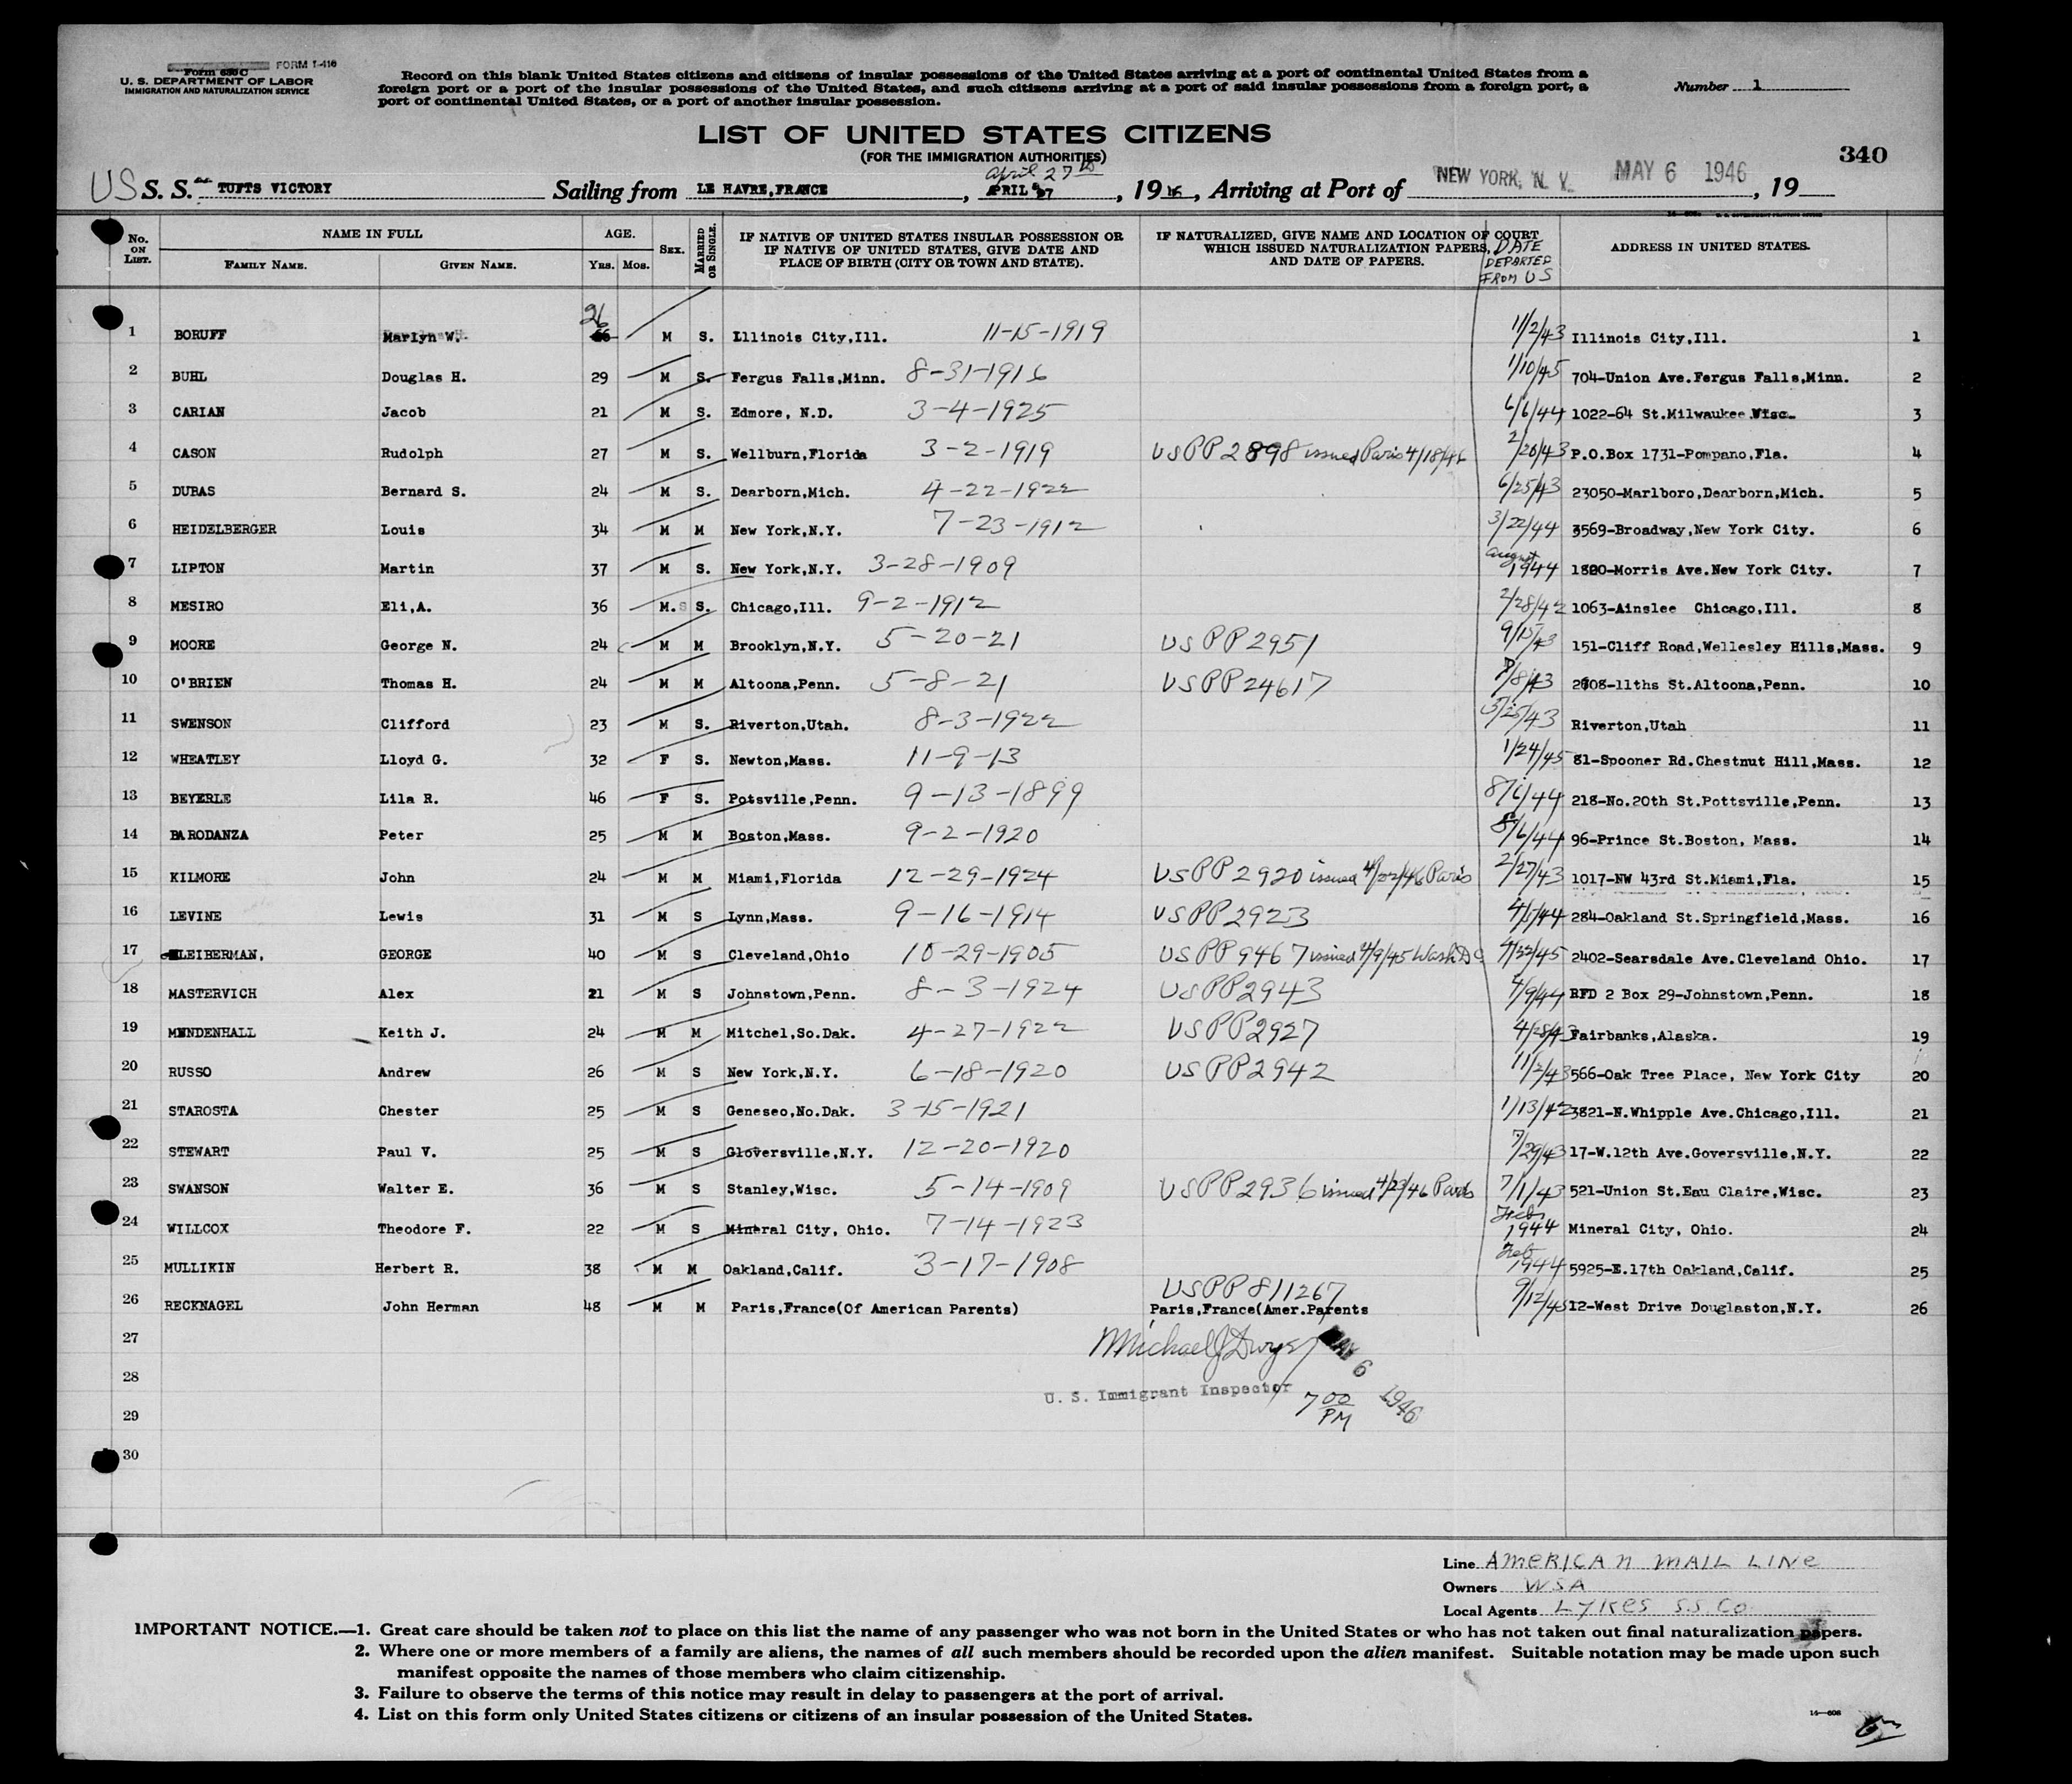 Form 630 C FORM I-416
U. S. DEPARTMENT OF LABOR
IMMIGRATION AND NATURALIZATION SERVICE
Record on this blank United States citizens and citizens of insular possessions of the United States arriving at a port of continental United States from a
foreign port or a port of the insular possessions of the United States, and such citizens arriving at a port of said insular possessions from a foreign port, a
port of continental United States, or a port of another insular possession.
Number 1
LIST OF UNITED STATES CITIZENS
(FOR THE IMMIGRATION AUTHORITIES)
340
April 27th
US S. S. TUFTS VICTORY Sailing from LE HAVRE,FRANCE, APRIL 27, 1946, Arriving at Port of NEW YORK, N. Y. MAY 6 1946, 19
No. ON LIST. NAME IN FULL FAMILY NAME. GIVEN NAME. AGE. YRS. MOS. SEX. MARRIED OR SINGLE. IF NATIVE OF UNITED STATES INSULAR POSSESSION OR IF NATIVE OF UNITED STATES, GIVE DATE AND PLACE OF BIRTH (CITY OR TOWN AND STATE). IF NATURALIZED, GIVE NAME AND LOCATION OF COURT WHICH ISSUED NATURALIZATION PAPERS, AND DATE OF PAPERS. DATE DEPARTED FROM US ADDRESS IN UNITED STATES.
1 BORUFF Marlyn W. 26 M S. Illinois City,Ill. 11-15-1919 11/2/43 Illinois City,Ill. 1
2 BUHL Douglas H. 29 M S. Fergus Falls,Minn. 8-31-1916 1/10/45 704-Union Ave.Fergus Falls,Minn. 2
3 CARIAN Jacob 21 M S. Edmore, N.D. 3-4-1925 6/6/44 1022-64 St.Milwaukee Wisc. 3
4 CASON Rudolph 27 M S. Wellburn,Florida 3-2-1919 USPP 2898 issued Paris 4/18/46 2/20/43 P.O.Box 1731-Pompano,Fla. 4
5 DUBAS Bernard S. 24 M S. Dearborn,Mich. 4-22-1922 6/25/43 23050-Marlboro,Dearborn,Mich. 5
6 HEIDELBERGER Louis 34 M M New York,N.Y. 7-23-1912 3/22/44 3569-Broadway,New York City. 6
7 LIPTON Martin 37 M S. New York,N.Y. 3-28-1909 August 1944 1820-Morris Ave.New York City. 7
8 MESIRO Eli,A. 36 M. S. Chicago,Ill. 9-2-1912 2/28/42 1063-Ainslee Chicago,Ill. 8
9 MOORE George N. 24 M M Brooklyn,N.Y. 5-20-21 USPP 2951 9/15/43 151-Cliff Road,Wellesley Hills,Mass. 9
10 O'BRIEN Thomas H. 24 M M Altoona,Penn. 5-8-21 USPP 24617 2708-11ths St.Altoona,Penn. 10
11 SWENSON Clifford 23 M S. Riverton,Utah. 8-3-1922 5/25/43 Riverton,Utah 11
12 WHEATLEY Lloyd G. 32 F S. Newton,Mass. 11-9-13 1/24/45 81-Spooner Rd.Chestnut Hill,Mass. 12
13 BEYERLE Lila R. 46 F S. Potsville,Penn. 9-13-1899 8/6/44 218-No.20th St.Pottsville,Penn. 13
14 BARODANZA Peter 25 M M Boston,Mass. 9-2-1920 8/6/44 96-Prince St.Boston, Mass. 14
15 KILMORE John 24 M M Miami,Florida 12-29-1924 USPP 2920 issued 4/22/46 Paris 2/27/43 1017-NW 43rd St.Miami,Fla. 15
16 LEVINE Lewis 31 M S Lynn,Mass. 9-16-1914 USPP 2923 4/1/44 284-Oakland St.Springfield,Mass. 16
17 LEIBERMAN, GEORGE 40 M S Cleveland,Ohio 10-29-1905 USPP 9467 issued 4/9/45 Wash DC 4/22/45 2402-Searsdale Ave.Cleveland Ohio. 17
18 MASTERVICH Alex 21 M S Johnstown,Penn. 8-3-1924 USPP 2943 4/9/44 RFD 2 Box 29-Johnstown,Penn. 18
19 MENDENHALL Keith J. 24 M M Mitchel,So.Dak. 4-27-1922 USPP 2927 4/28/43 Fairbanks,Alaska. 19
20 RUSSO Andrew 26 M S New York,N.Y. 6-18-1920 USPP 2942 11/2/43 566-Oak Tree Place, New York City 20
21 STAROSTA Chester 25 M S Geneseo,No.Dak. 3-15-1921 1/13/42 3821-N.Whipple Ave.Chicago,Ill. 21
22 STEWART Paul V. 25 M S Gloversville,N.Y. 12-20-1920 7/29/43 17-W.12th Ave.Goversville,N.Y. 22
23 SWANSON Walter E. 36 M S Stanley,Wisc. 5-14-1909 USPP 2936 issued 4/23/46 Paris 7/1/43 521-Union St.Eau Claire,Wisc. 23
24 WILLCOX Theodore F. 22 M S Mineral City, Ohio. 7-14-1923 Feb 1944 Mineral City, Ohio. 24
25 MULLIKIN Herbert R. 38 M M Oakland,Calif. 3-17-1908 Feb 1944 5925-E.17th Oakland,Calif. 25
26 RECKNAGEL John Herman 48 M M Paris,France(Of American Parents) USPP 811267 Paris,France(Amer.Parents 9/12/45 12-West Drive Douglaston,N.Y. 26
27
Michael J Dwyer MAY 6 1946
28
U. S. Immigrant Inspector 7 00 PM
29
30
Line AMERICAN MAIL LINE
Owners WSA
Local Agents LYKES S.S. Co
IMPORTANT NOTICE.—1. Great care should be taken not to place on this list the name of any passenger who was not born in the United States or who has not taken out final naturalization papers.
2. Where one or more members of a family are aliens, the names of all such members should be recorded upon the alien manifest. Suitable notation may be made upon such
manifest opposite the names of those members who claim citizenship.
3. Failure to observe the terms of this notice may result in delay to passengers at the port of arrival.
4. List on this form only United States citizens or citizens of an insular possession of the United States.
14—608